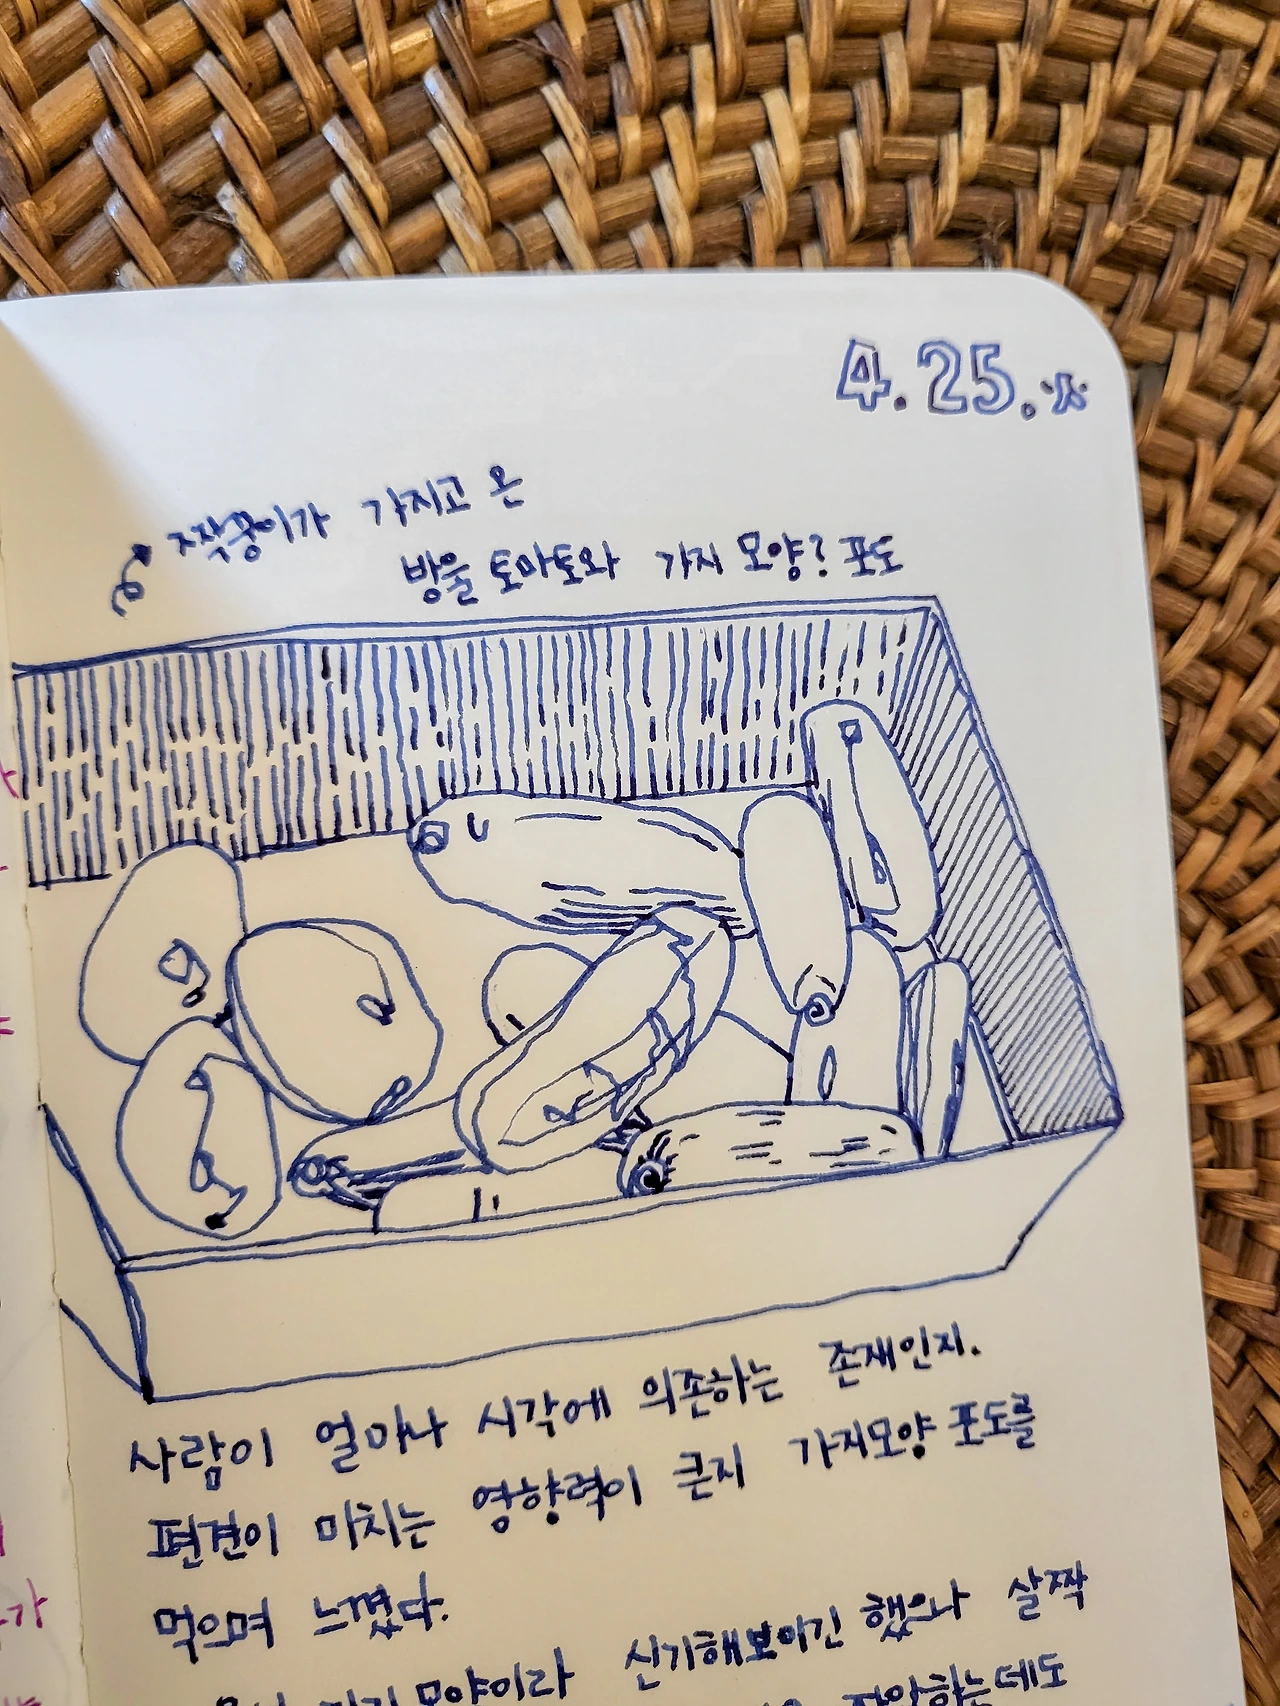 4.25.
짝꿍이가 가지고 온
방울토마토와 가지 모양? 포도
사람이 얼마나 시각에 의존하는 존재인지.
편견이 미치는 영향력이 큰지 가지모양 포도를
먹으며 느꼈다.
모양이라 신기해보이긴 했으나 살짝